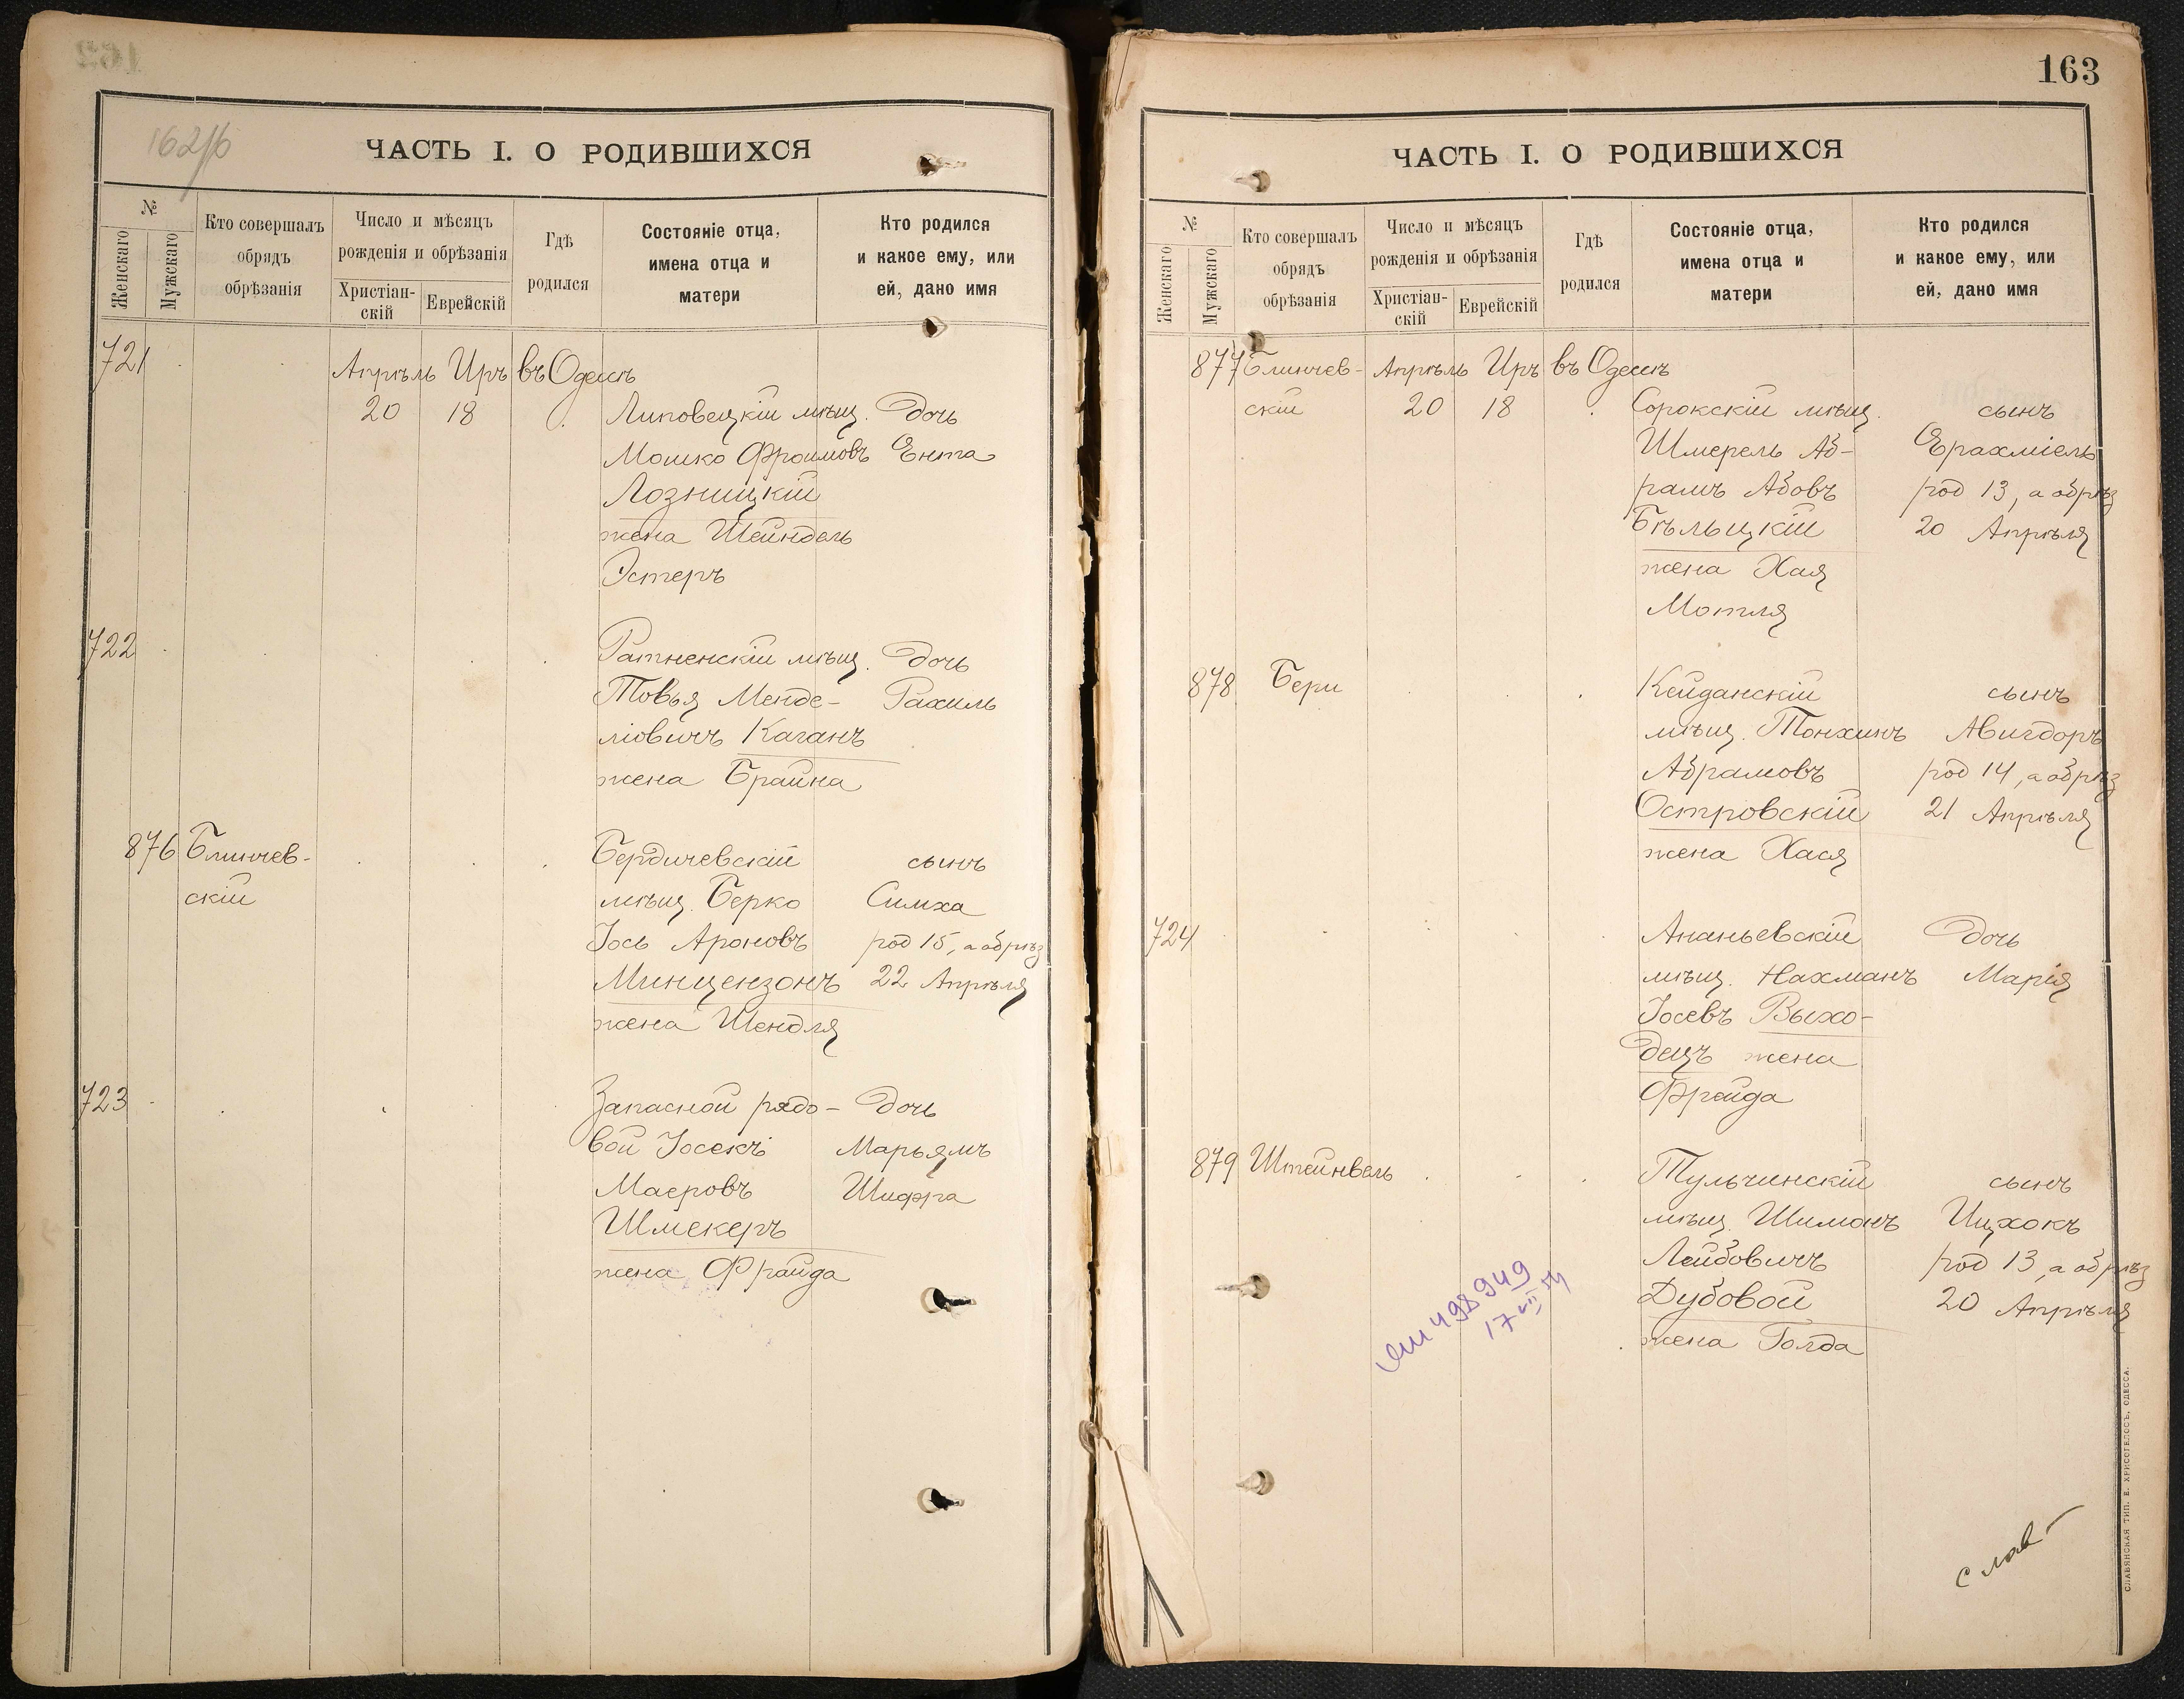 162об
ЧАСТЬ I. О РОДИВШИХСЯ
№
Женскаго
Мужскаго
Кто совершалъ
обрядъ
обрѣзанія
Число и мѣсяцъ
рожденія и обрѣзанія
Христіан-
скій
Еврейскій
Гдѣ
родился
Состояніе отца,
имена отца и
матери
Кто родился
и какое ему, или
ей, дано имя
721
Апрѣль Иръ въ Одессѣ
20 18 Липовецкій мѣщ. дочь
Мошко Фроимовъ Ента
Лозницкій
жена Шейндель
Эстеръ
722 Ратненскій мѣщ. дочь
Товья Менде- Рахиль
ліовичъ Каганъ
жена Брайна
876 Блинчев- Бердичевскій сынъ
скій мѣщ. Берко Симха
Іось Ароновъ род 15, а обрѣз
Минцензонъ 22 Апрѣля
жена Шендля
723 Запасной рядо- дочь
вой Іосекъ Марьямъ
Маеровъ Шифра
Шмекеръ
жена Фрайда
163
ЧАСТЬ I. О РОДИВШИХСЯ
№
Женскаго
Мужскаго
Кто совершалъ
обрядъ
обрѣзанія
Число и мѣсяцъ
рожденія и обрѣзанія
Христіан-
скій
Еврейскій
Гдѣ
родился
Состояніе отца,
имена отца и
матери
Кто родился
и какое ему, или
ей, дано имя
877 Блинчев- Апрѣль Иръ въ Одессѣ
скій 20 18 Сорокскій мѣщ. сынъ
Шмерель Аб- Ерахміель
рамъ Абовъ род 13, а обрѣз
Бѣльцкій 20 Апрѣля
жена Хая
Мотля
878 Бери Кейданскій сынъ
мѣщ. Тонхинъ Авигдоръ
Абрамовъ род 14, а обрѣз
Островскій 21 Апрѣля
жена Хася
724 Ананьевскій дочь
мѣщ. Нахманъ Марія
Іосевъ Выхо-
децъ жена
Фрайда
879 Штейнвель Тульчинскій сынъ
мѣщ. Шимонъ Ицхокъ
Лейбовичъ род 13, а обрѣз
Дубовой 20 Апрѣля
жена Голда
498949
17 VII 54
слав
СЛАВЯНСКАЯ ТИП. Е. ХРИСОГЕЛОСЪ, ОДЕССА.